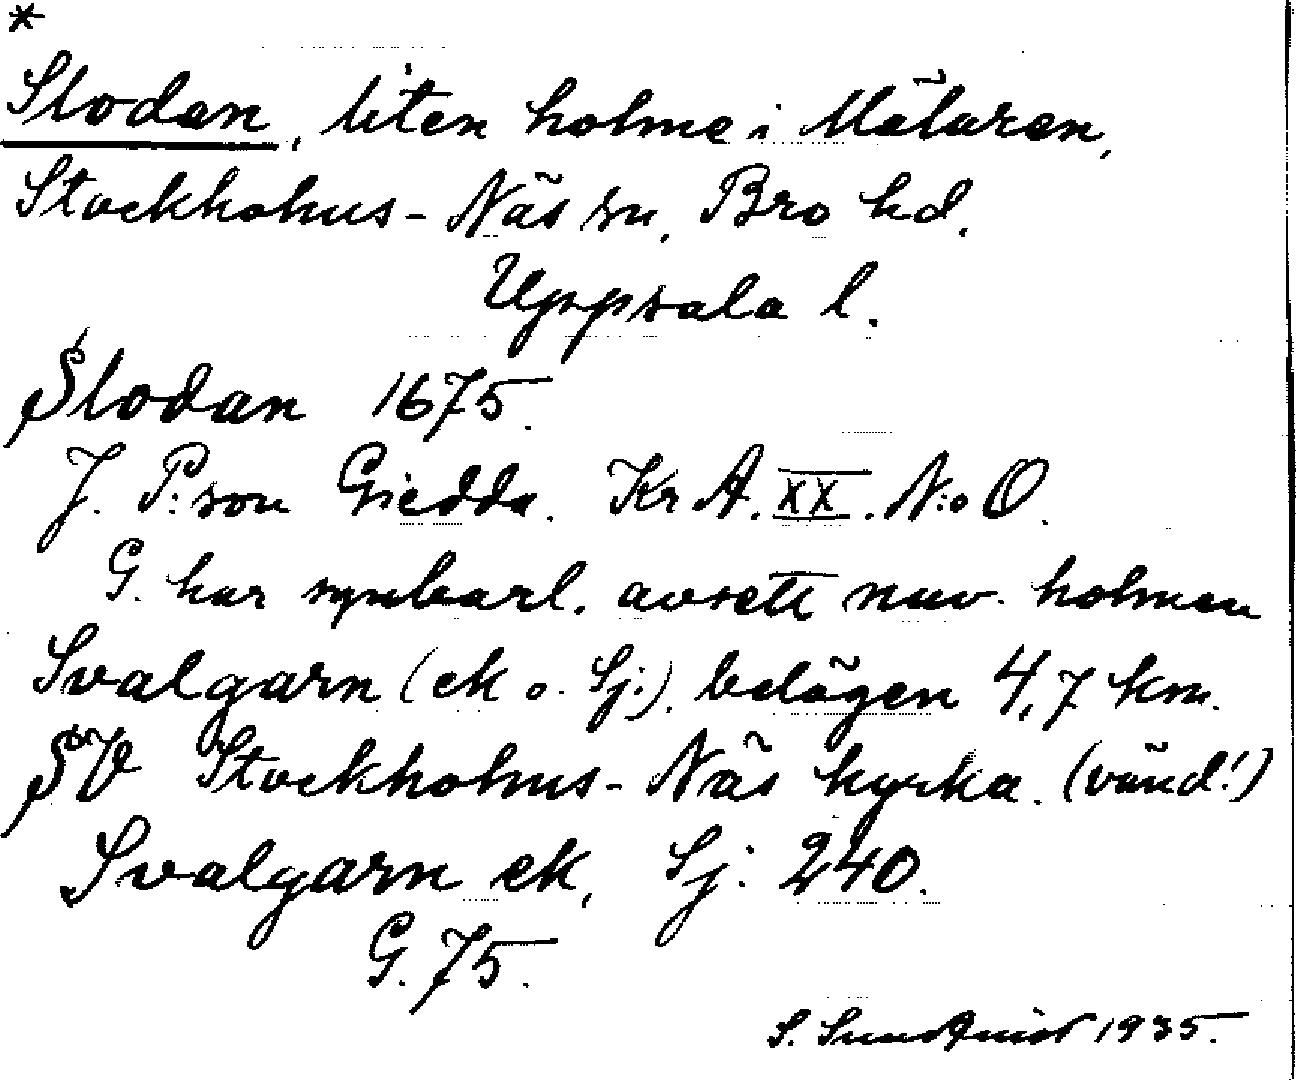 *
Slodan, liten holme i Mälaren,
Stockholms-Näs sn, Bro hd.
Uppsala l.
Slodan 1675.
J. P:son Giedda. Kr A. XX. N:o O.
G. har synbarl. avsett nuv. holmen
Svalgarn (ek o. Sj.), belägen 4,7 km.
SV Stockholms-Näs kyrka. (vänd!)
Svalgarn ek, Sj: 240.
G. 75.
S. Sundqvist 1935.